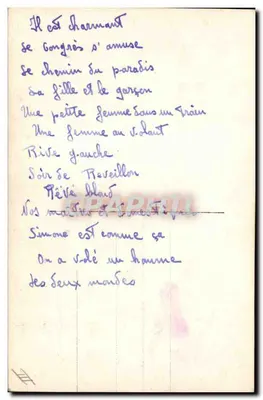 Il est charmant
Le Congrès s'amuse
Le chemin du paradis
La fille et le garçon
Une petite femme dans un train
Une femme au volant
Rive gauche
Soir de Reveillon
Rêve blond
Nos maîtres
Simone est comme ça
On a volé un homme
Les deux mondes